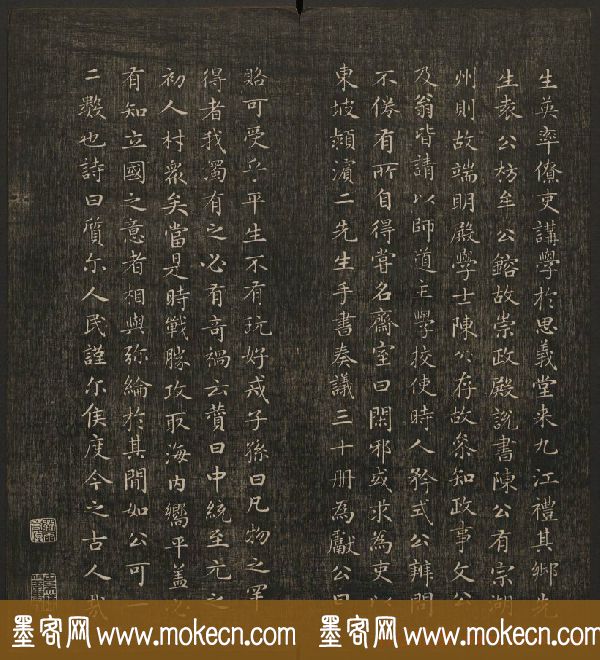 生英率僚吏講學於思義堂来九江禮其鄉先
生袁公枋牟公鎔故崇政殿說書陳公有宗湖
州則故端明殿學士陳公存故叅知政事文公
及翁皆請以師道主學校使時人矜式公辨問
不倦有所自得嘗名齋室曰閑邪或求為吏以
東坡潁濱二先生手書奏議三十册為獻公曰
賂可受乎平生不有玩好戒子孫曰凡物之罕
得者我獨有之必有奇禍云贊曰中統至元之
初人材衆矣當是時戰勝攻取海内嚮平蓋必
有知立國之意者相與弥綸於其間如公可一
二數也詩曰質尔人民謹尔侯度今之古人哉
墨客网 www.mokecn.com 墨客网 www.mokecn.com